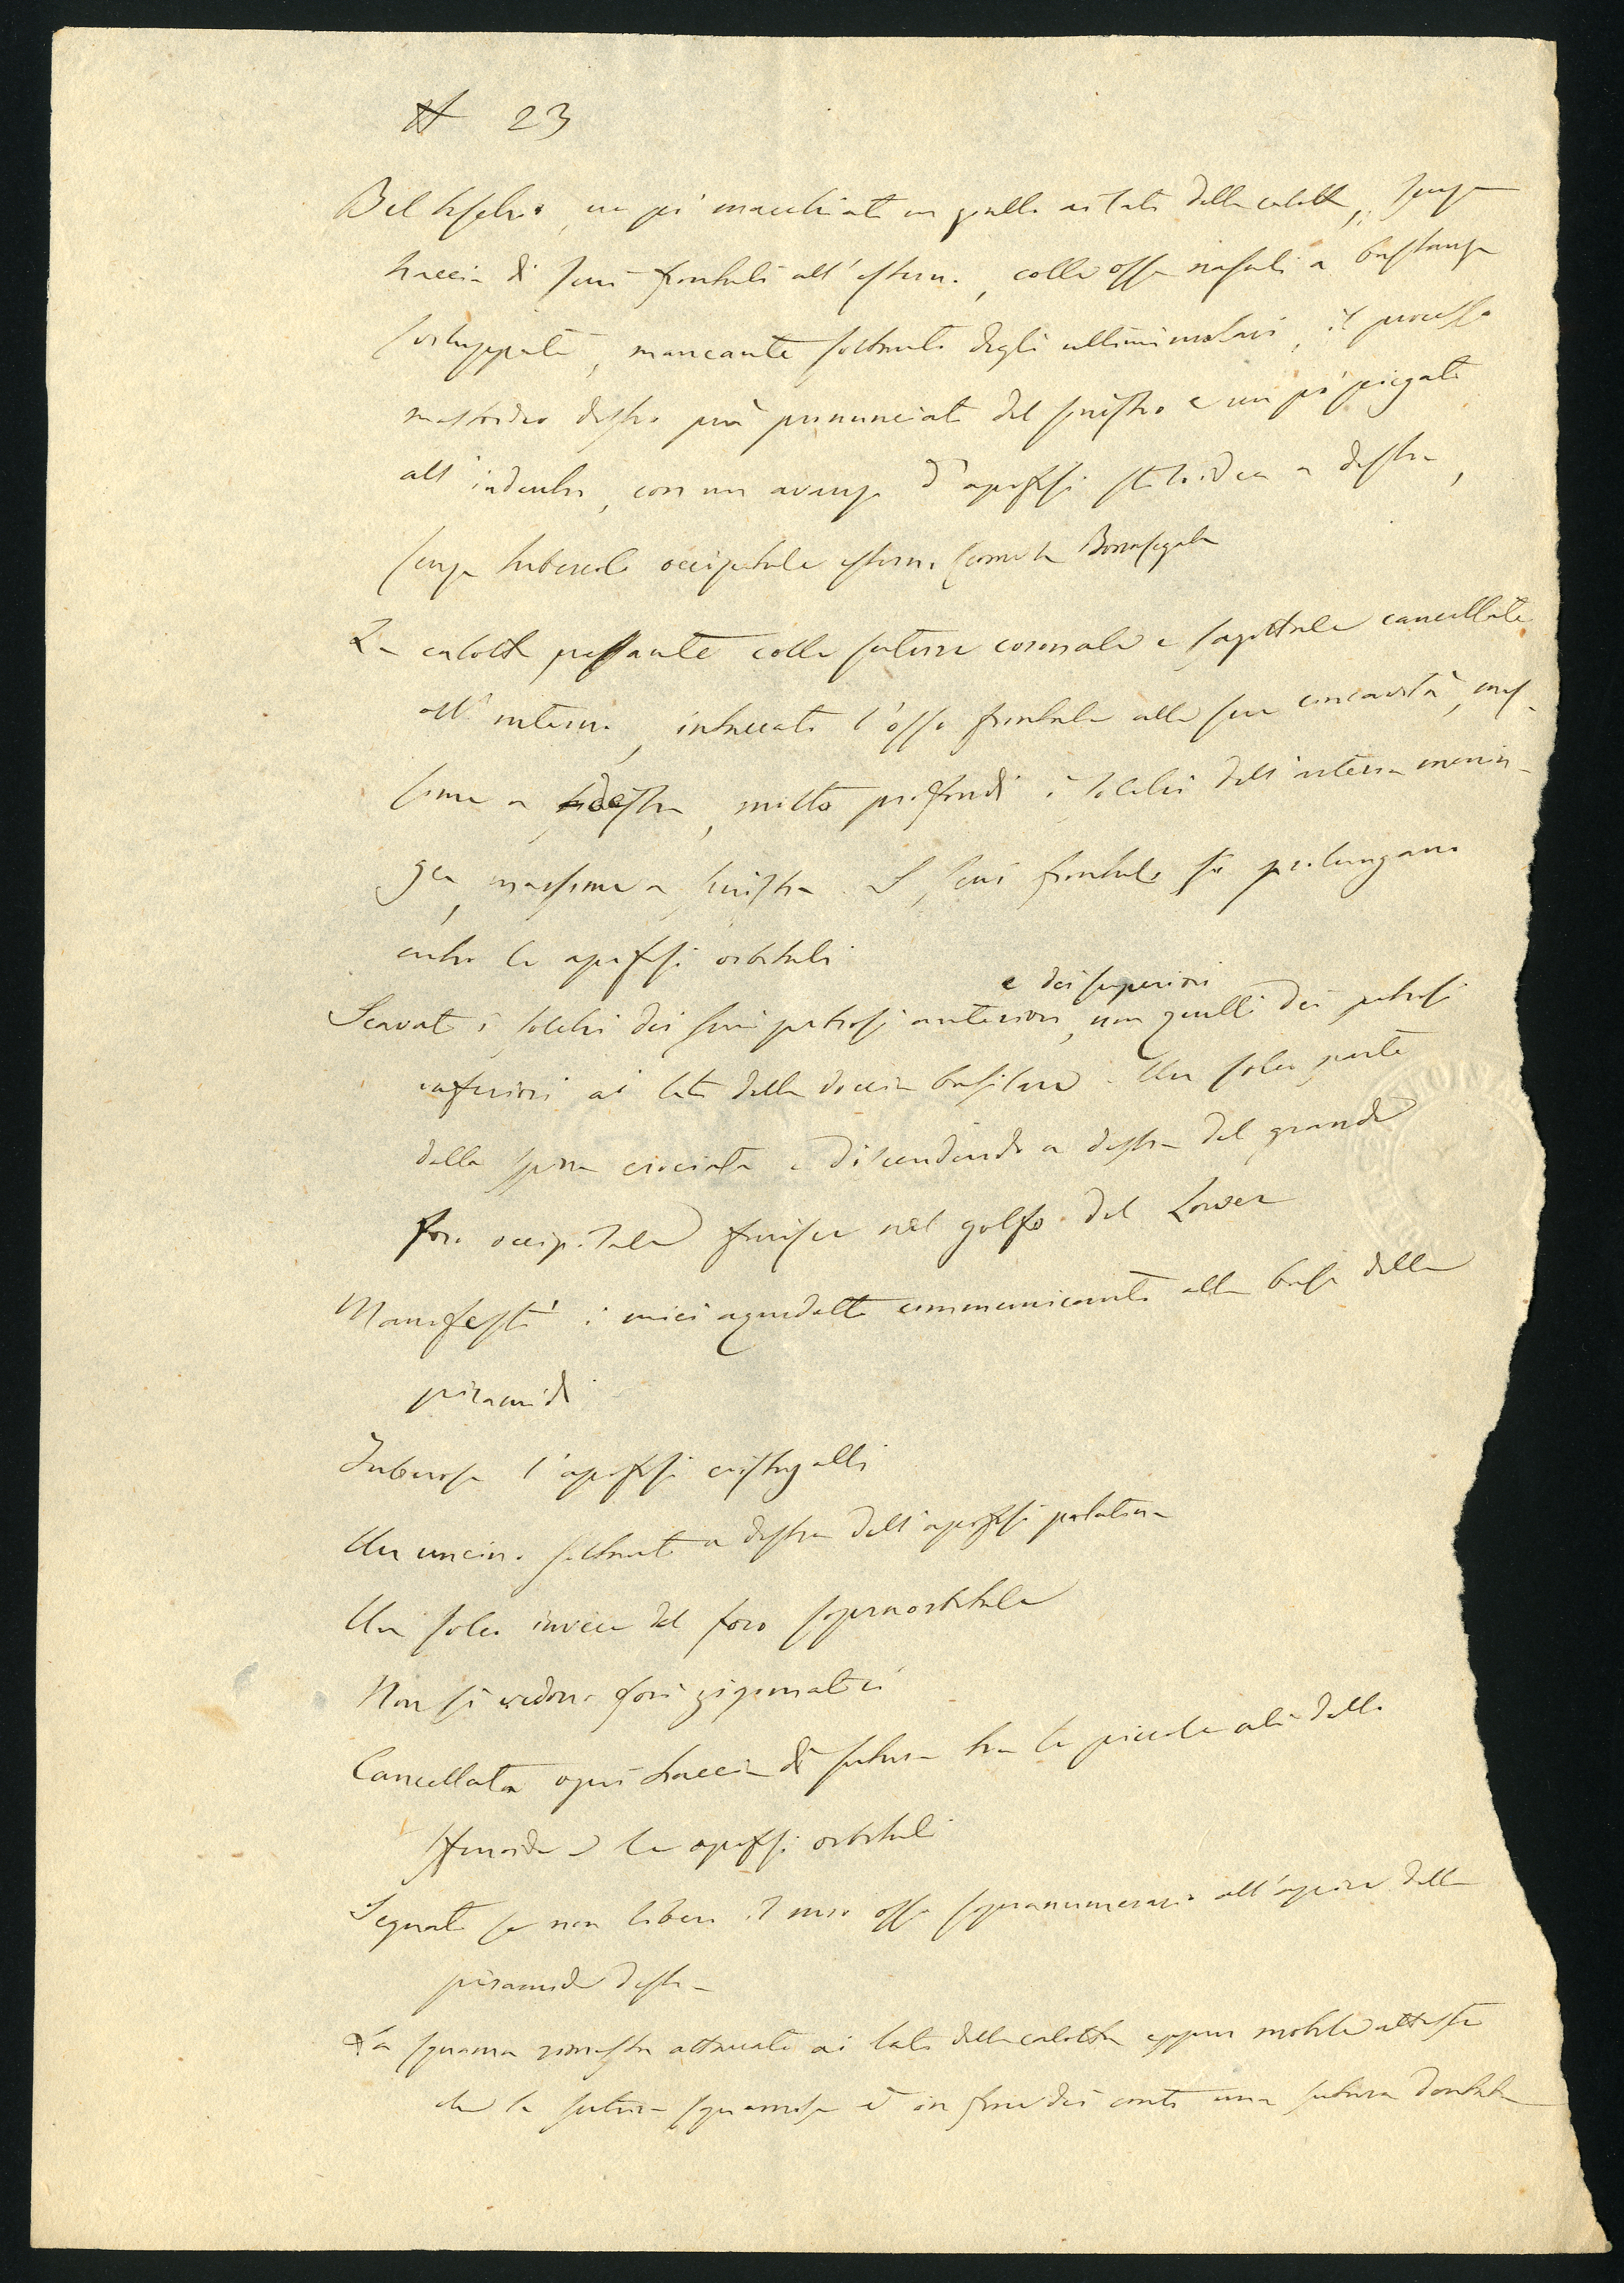 # 23
Bel teschio, un po' macchiato in giallo ai lati della calotta, senza
traccia di seni frontali all'esterno, colle ossa nasali a bastanza
sviluppate, mancante soltanto degli ultimi molari, il processo
mastoideo destro più pronunciato del sinistro e un po' piegato
all'indentro, con un avanzo d'apofisi stiloidea a destra,
senza tubercolo occipitale esterno come la
La calotta pesante colle suture coronale e sagittale cancellate
all'interno, intaccato l'osso frontale alla sua concavità, mas-
sime a destra, molto profondi i solchi dell'arteria menin-
gea, massime a sinistra. I seni frontali si prolungano
entro le apofisi orbitali
Scavati i solchi dei seni petrosi anteriori e dei superiori, non quelli dei petrosi
inferiori ai lati della doccia basilare. Un solco parte
dalla spina crociata e discendendo a destra del grande
foro occipitale finisce nel golfo del Lower
Manifesti i miei aquedotti communicanti alla base delle
piramidi
Tuberosa l'apofisi cristagalli
Un uncino soltanto a destra dell'apofisi palatina
Un solco invece del foro sopraorbitale
Non si vedono fori zigomatici
Cancellata ogni traccia di sutura tra le piccole ali dello
sfenoide e le apofisi orbitali
Segnato se non libero il mio osso sopranumerario all'apice della
piramide destra
La squama rimasta attaccata ai lati della calotta eppur mobile attesta
che la sutura squamosa è in fine dei conti una sutura dentata